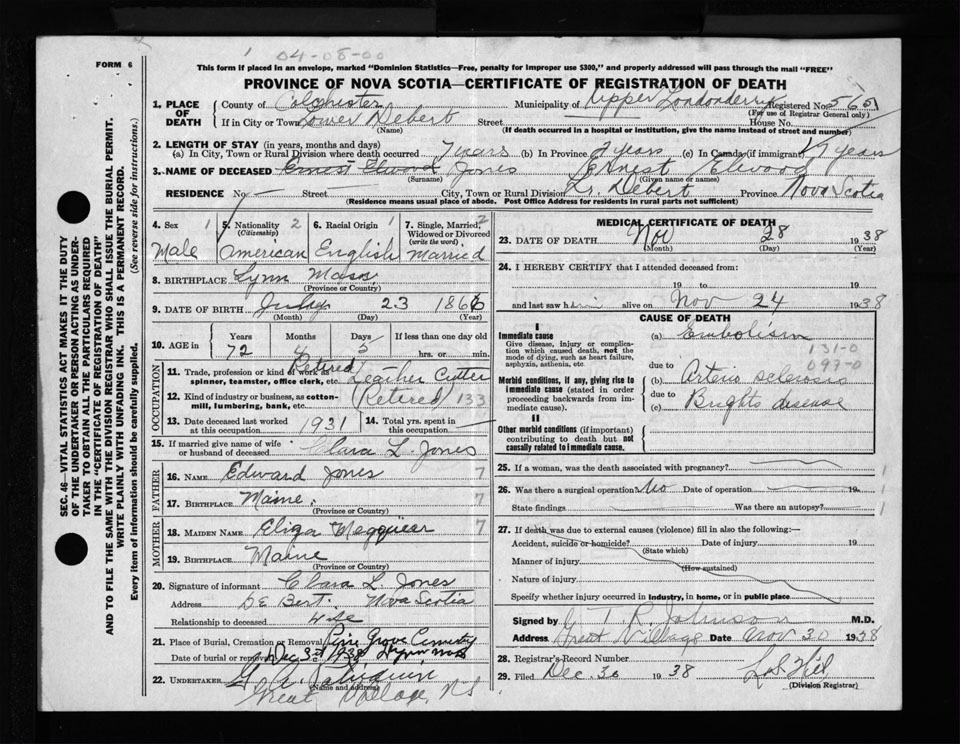 04-08-00
FORM 6
This form if placed in an envelope, marked "Dominion Statistics—Free, penalty for improper use $300," and properly addressed will pass through the mail "FREE"
PROVINCE OF NOVA SCOTIA—CERTIFICATE OF REGISTRATION OF DEATH
SEC. 46—VITAL STATISTICS ACT MAKES IT THE DUTY
OF THE UNDERTAKER OR PERSON ACTING AS UNDER-
TAKER TO OBTAIN ALL THE PARTICULARS REQUIRED
IN THE "CERTIFICATE OF REGISTRATION OF DEATH"
AND TO FILE THE SAME WITH THE DIVISION REGISTRAR WHO SHALL ISSUE THE BURIAL PERMIT.
WRITE PLAINLY WITH UNFADING INK. THIS IS A PERMANENT RECORD.
Every item of information should be carefully supplied. (See reverse side for instructions.)
1. PLACE OF DEATH
County of Colchester Municipality of Upper Londonderry Registered No. 565
(For use of Registrar General only)
If in City or Town Lower Debert Street House No.
(Name) (If death occurred in a hospital or institution, give the name instead of street and number)
2. LENGTH OF STAY (in years, months and days)
(a) In City, Town or Rural Division where death occurred 7 years (b) In Province 7 years (c) In Canada (if immigrant) years
3. NAME OF DECEASED Ernest Elwood Jones Ernest Elwood
(Surname) (Given name or names)
RESIDENCE No. Street City, Town or Rural Division Lr. Debert Province Nova Scotia
(Residence means usual place of abode. Post Office Address for residents in rural parts not sufficient)
4. Sex 1 5. Nationality 2 (Citizenship) 6. Racial Origin 1 7. Single, Married, 2 Widowed or Divorced (write the word)
Male American English Married
8. BIRTHPLACE Lynn Mass.
(Province or Country)
9. DATE OF BIRTH July 23 1866
(Month) (Day) (Year)
10. AGE in Years Months Days If less than one day old
72 4 5 hrs. or min.
OCCUPATION
11. Trade, profession or kind of work as spinner, teamster, office clerk, etc. Retired Leather Cutter
12. Kind of industry or business, as cotton-mill, lumbering, bank, etc. (Retired) 133
13. Date deceased last worked at this occupation 1931 14. Total yrs. spent in this occupation
15. If married give name of wife or husband of deceased Clara L. Jones
FATHER
16. NAME Edward Jones 7
17. BIRTHPLACE Maine 7
(Province or Country)
MOTHER
18. MAIDEN NAME Eliza Megquier 7
19. BIRTHPLACE Maine
(Province or Country)
20. Signature of informant Clara L. Jones
Address De Bert. Nova Scotia
Relationship to deceased Wife
21. Place of Burial, Cremation or Removal Pine Grove Cemetery
Date of burial or removal Dec 3rd 1938 Lynn Mass
22. UNDERTAKER G. A.
(Name and address)
Great Village, N S
MEDICAL CERTIFICATE OF DEATH
23. DATE OF DEATH Nov 28 1938
(Month) (Day) (Year)
24. I HEREBY CERTIFY that I attended deceased from:
19 to 19
and last saw him alive on Nov 24 1938
CAUSE OF DEATH
I
Immediate cause
Give disease, injury or complication which caused death, not the mode of dying, such as heart failure, asphyxia, asthenia, etc.
(a) Embolism
131-0
due to 097-0
Morbid conditions, if any, giving rise to immediate cause (stated in order proceeding backwards from immediate cause).
(b) Arterio sclerosis
due to
(c) Brights disease
II
Other morbid conditions (if important) contributing to death but not causally related to immediate cause.
25. If a woman, was the death associated with pregnancy? 1
26. Was there a surgical operation? No Date of operation 19 1
State findings Was there an autopsy? 1
27. If death was due to external causes (violence) fill in also the following:—
Accident, suicide or homicide? Date of injury 193
(State which)
Manner of injury
(How sustained)
Nature of injury
Specify whether injury occurred in industry, in home, or in public place
Signed by T. R. Johnson M.D.
Address Great Village Date Nov 30 1938
28. Registrar's Record Number
29. Filed Dec. 30 1938
(Division Registrar)